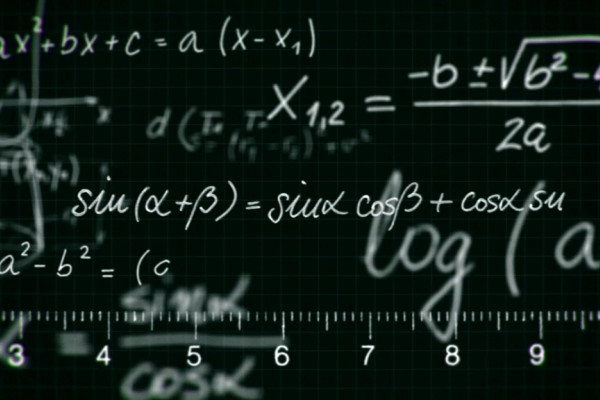 ax²+bx+c = a (x-x₁)
X₁,₂ = -b ±√b²-
2a
sin(α+β) = sinα cosβ + cosα sin
a²- b² = (c
log (a
sinα
cosα
3 4 5 6 7 8 9